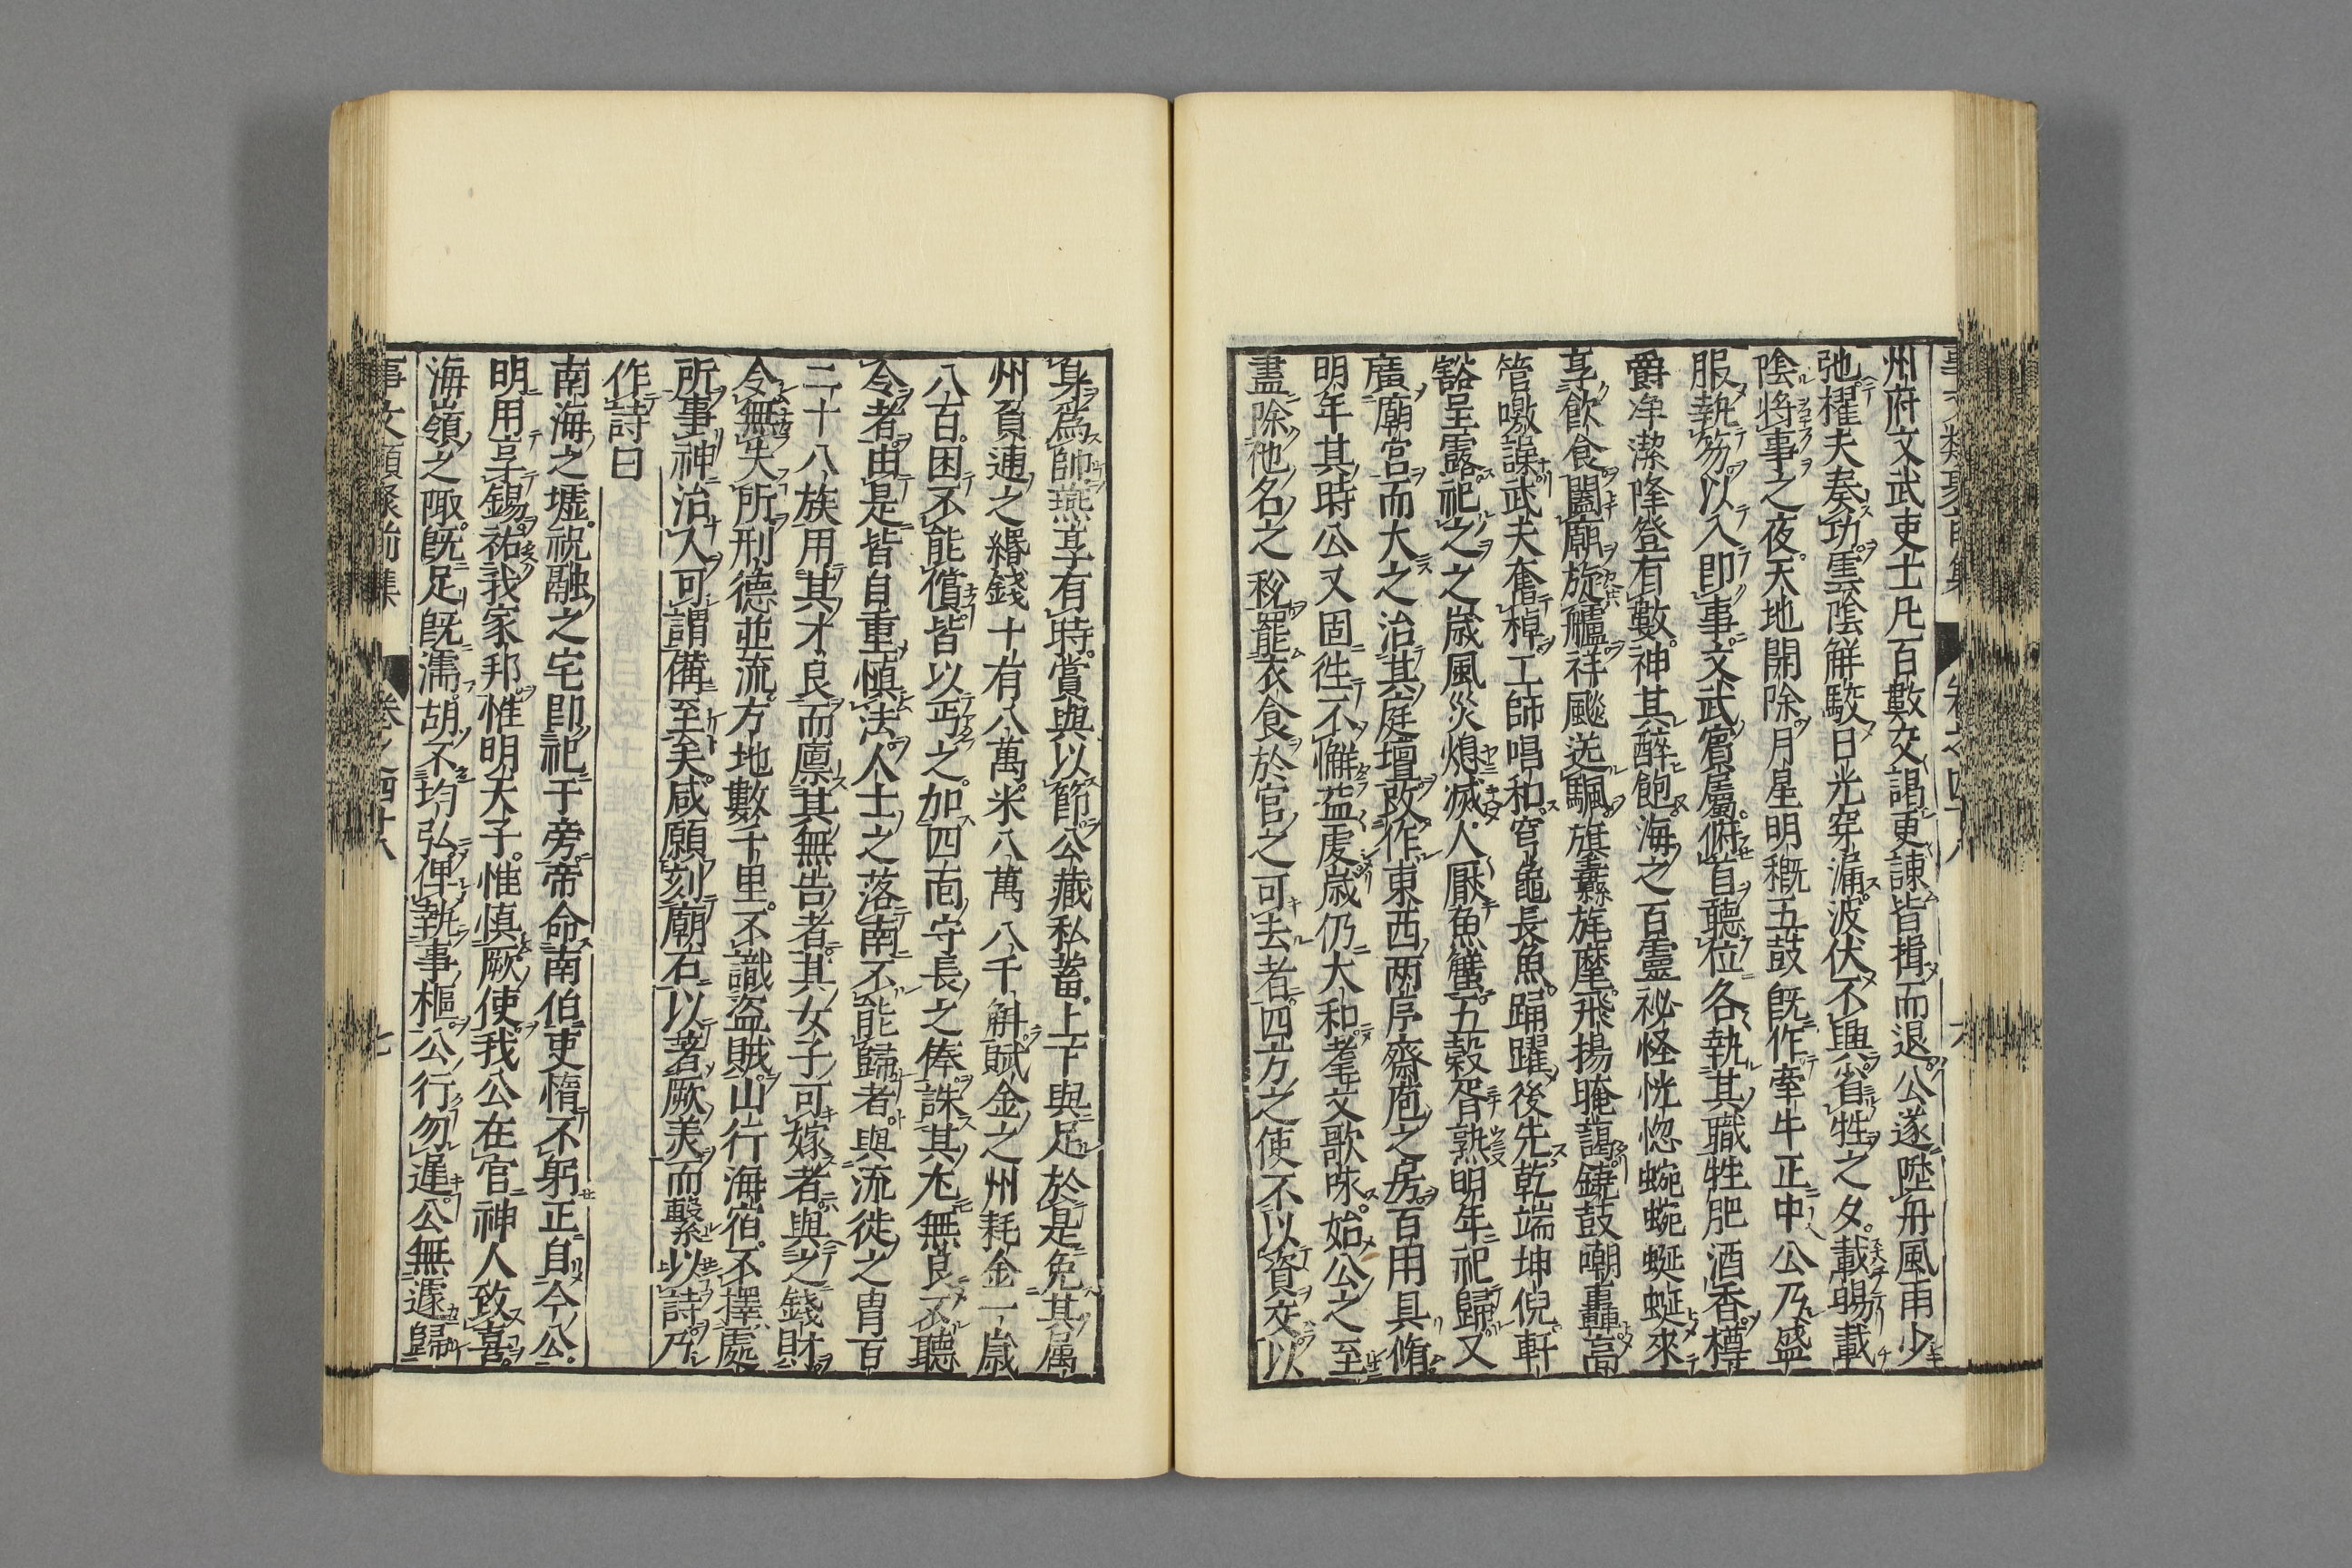 州府文武吏士凡百數交謁更諫皆揖而退公遂陞舟風雨少
弛櫂夫奏功雲陰解駁日光穿漏波伏不興省牲之夕載暘載
陰將事之夜天地開除月星明穊五鼓旣作牽牛正中公乃盛
服執笏以入卽事文武賓屬俯首聽位各執其職牲肥酒香樽
爵净潔降登有數神其醉飽海之百靈祕怪恍惚蜿蜿蜒蜒來
享飮食闔廟旋艫祥飈送颿旗纛旄麾飛揚晻藹鐃鼓嘲轟高
管噭譟武夫奮棹工師唱和穹龜長魚踊躍後先乾端坤倪軒
豁呈露祀之之歲風災熄滅人厭魚蟹五榖胥熟明年祀歸又
廣廟宮而大之治其庭壇改作東西两序齋庖之房百用具脩
明年其時公又固徃不懈益虔歲仍大和耋艾歌咏始公之至
盡除他名之稅罷衣食於官之可去者四方之使不以資交以
身爲帥燕享有時賞與以節公藏私蓄上下與足於是免其属
州負逋之緡錢十有八萬米八萬八千斛賦金之州耗金一歲
八百困不能償皆以丏之加四面守長之俸誅其尤無良不聽
令者由是皆自重慎法人士之落南不能歸者與流徙之胄百
二十八族用其才良而廪其無告者其女子可嫁者與之錢財
令無失所刑德並流方地數千里不識盜賊山行海宿不擇處
所事神治人可謂備至矣咸願刻廟石以著厥美而繫以詩乃
作詩曰
南海之墟祝融之宅卽祀于旁帝命南伯吏惰不躬正自今公
明用享錫祐我家邦惟明天子惟慎厥使我公在官神人致喜
海嶺之陬旣足旣濡胡不均弘俾執事樞公行勿遲公無遽歸
事文類聚前集 卷之四十八 七